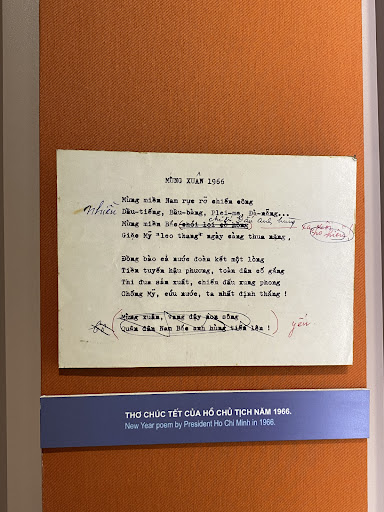 MỪNG XUÂN 1966
Mừng miền Nam rực rỡ chiến công
nhiều
Dầu-tiếng, Bàu-bàng, Plei-me, Đà-nẵng...
chiến đấu anh hùng
Mừng miền Bắc
Giặc Mỹ "leo thang" ngày càng thua nặng,
Đồng bào cả nước đoàn kết một lòng
Tiền tuyến hậu phương, toàn dân cố gắng
Thi đua sản xuất, chiến đấu xung phong
Chống Mỹ, cứu nước, ta nhất định thắng !
Mừng xuân, vang dậy non sông
Quân dân Nam Bắc anh hùng tiến lên !
yếu
THƠ CHÚC TẾT CỦA HỒ CHỦ TỊCH NĂM 1966.
New Year poem by President Ho Chi Minh in 1966.